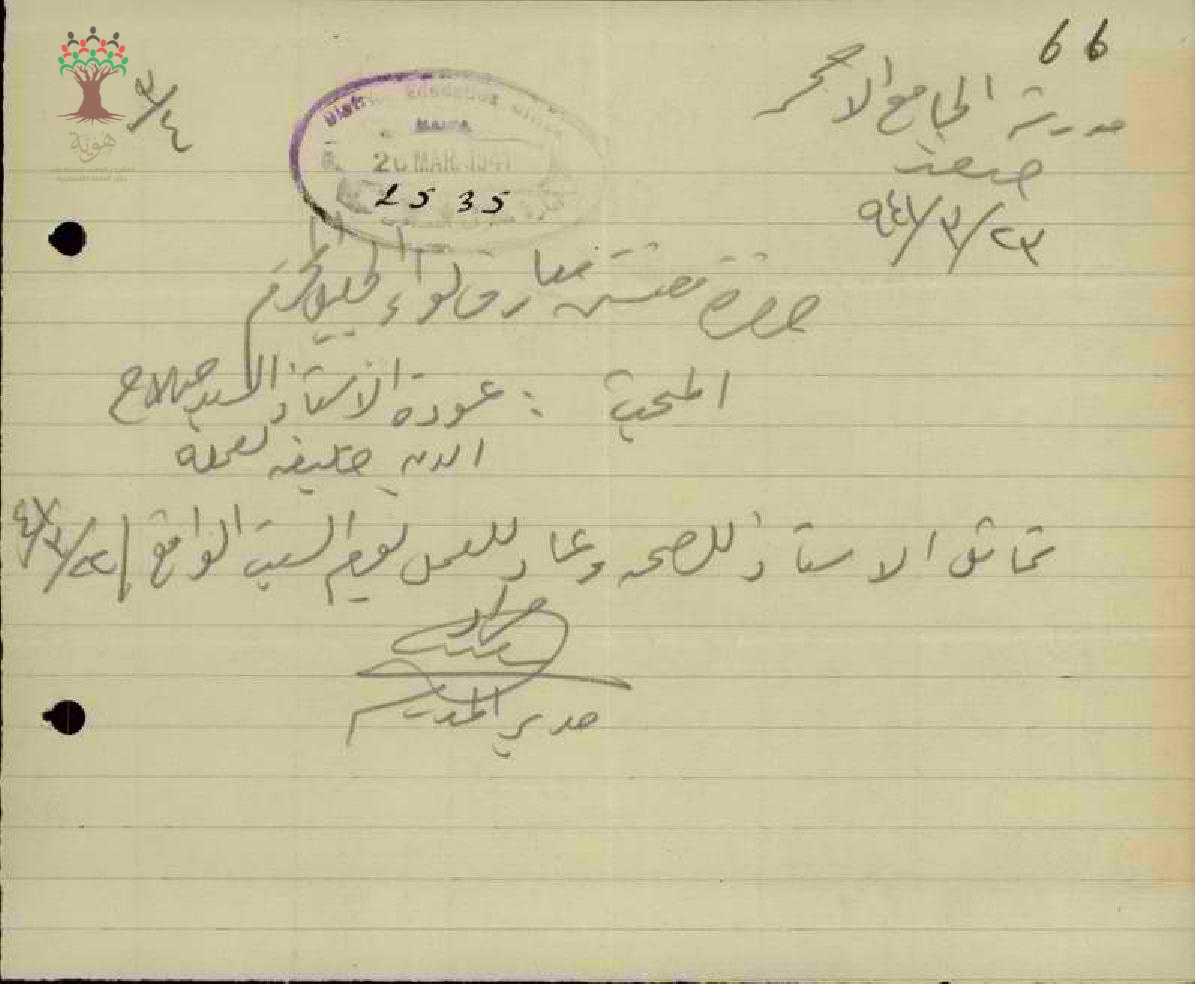 66
مدرسة الجامع الاحمر
صفد
٩٤٧/٣/٢٣
٣/٤
هوية
District Education Office
HAIFA
20 MAR. 1947
2535
حضرة مفتش معارف لواء الجليل المحترم
المبحث : عودة الاستاذ السيد صلاح
الدين خليفه لعمله
تماثل الاستاذ للصحه وعاد للعمل يوم السبت الواقع ٤٧/٣/٢٢
مدير المدرسة